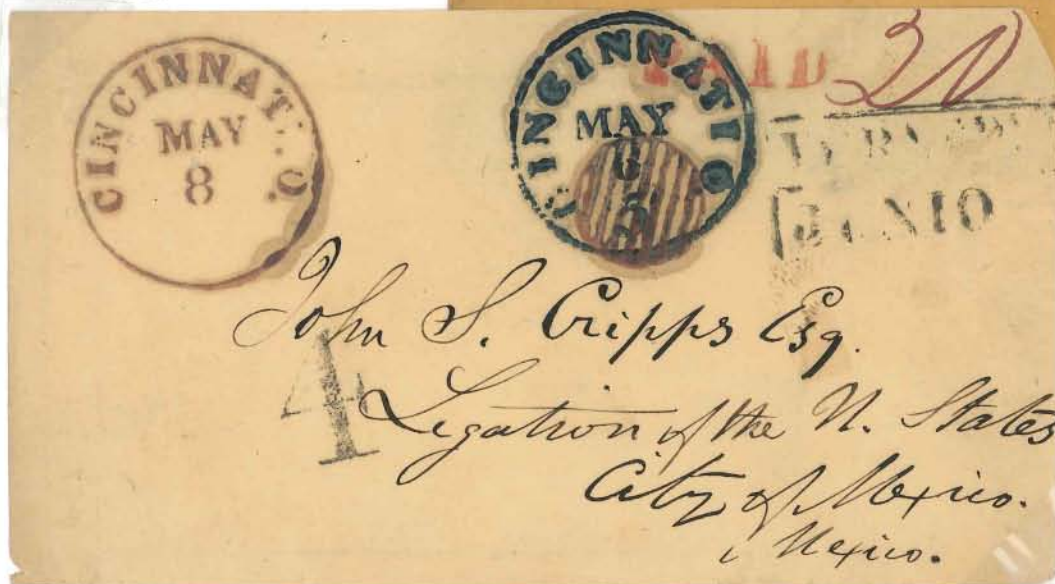 CINCINNATI. O.
MAY
8
CINCINNATI O
MAY
PAID
20
JUNIO
John S. Cripps Esq.
4
Legation of the U. States
City of Mexico.
Mexico.